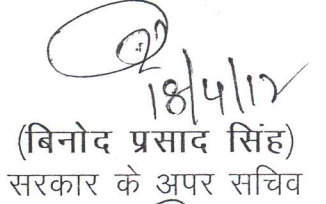 18/4/12
(बिनोद प्रसाद सिंह)
सरकार के अपर सचिव